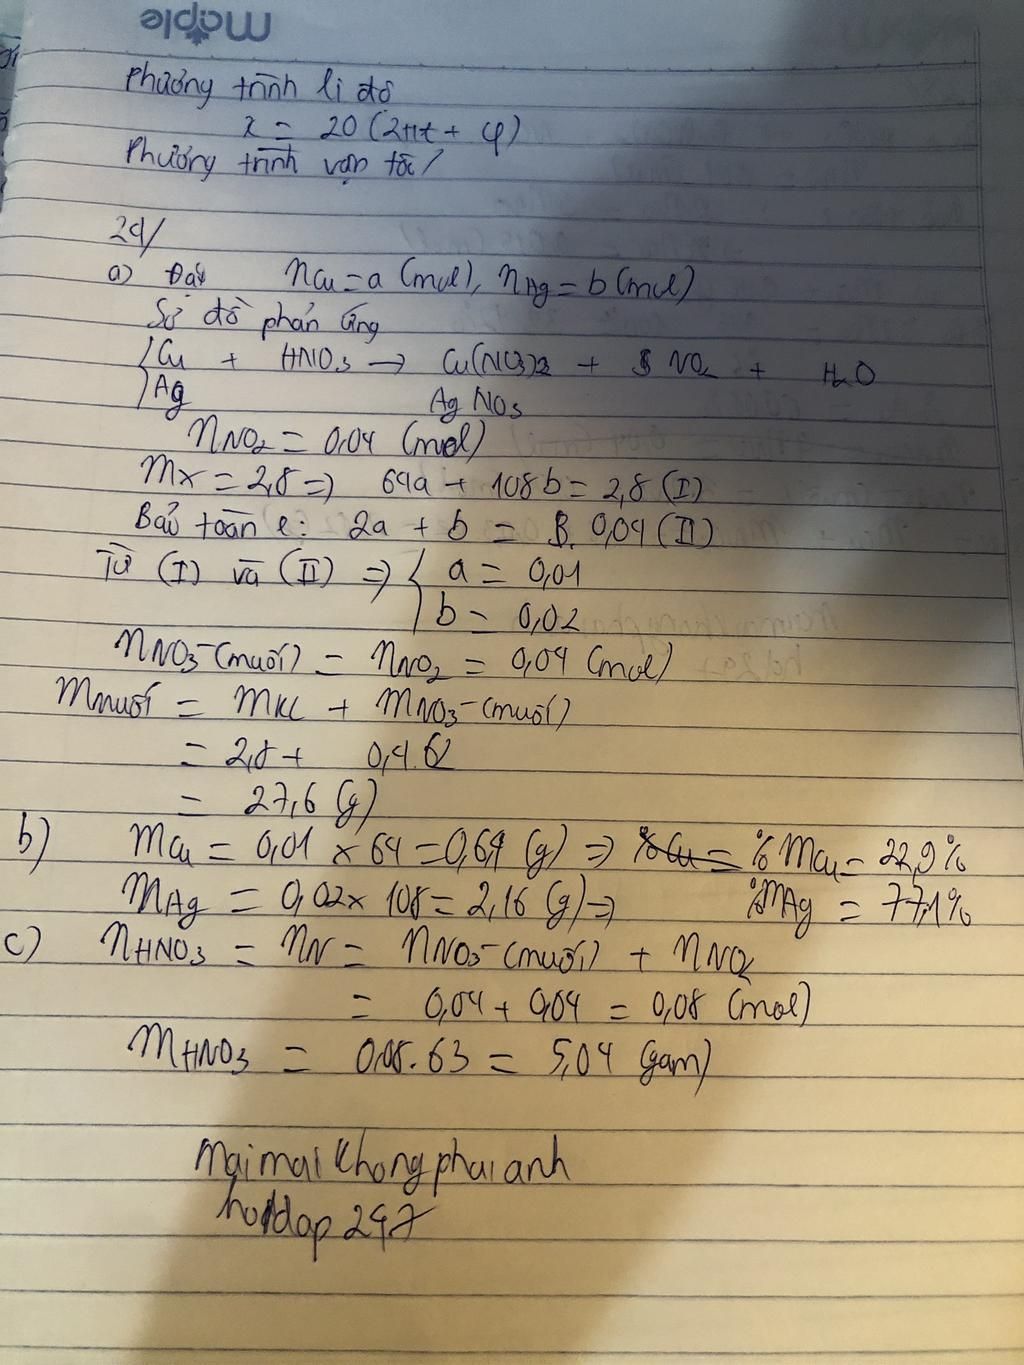 maple
Phương trình li độ
x = 20 (2πt + φ)
Phương trình vận tốc/
29/
a) Đặt nCu = a (mol), nAg = b (mol)
Sơ đồ phản ứng
{ Cu + HNO3 → Cu(NO3)2 + NO2 + H2O
Ag AgNO3
nNO2 = 0,04 (mol)
mX = 2,8 => 64a + 108b = 2,8 (I)
Bảo toàn e: 2a + b = 0,04 (II)
Từ (I) và (II) => { a = 0,01
b = 0,02
nNO3-(muối) = nNO2 = 0,04 (mol)
mmuối = mKL + mNO3-(muối)
= 2,8 + 0,4.62
= 27,6 (g)
b) mCu = 0,01 × 64 = 0,64 (g) => %Cu = %mCu = 22,9%
mAg = 0,02 × 108 = 2,16 (g) => %mAg = 77,1%
c) nHNO3 = nN = nNO3-(muối) + nNO2
= 0,04 + 0,04 = 0,08 (mol)
mHNO3 = 0,08.63 = 5,04 (gam)
maimaikhongphaianh
hoidap247